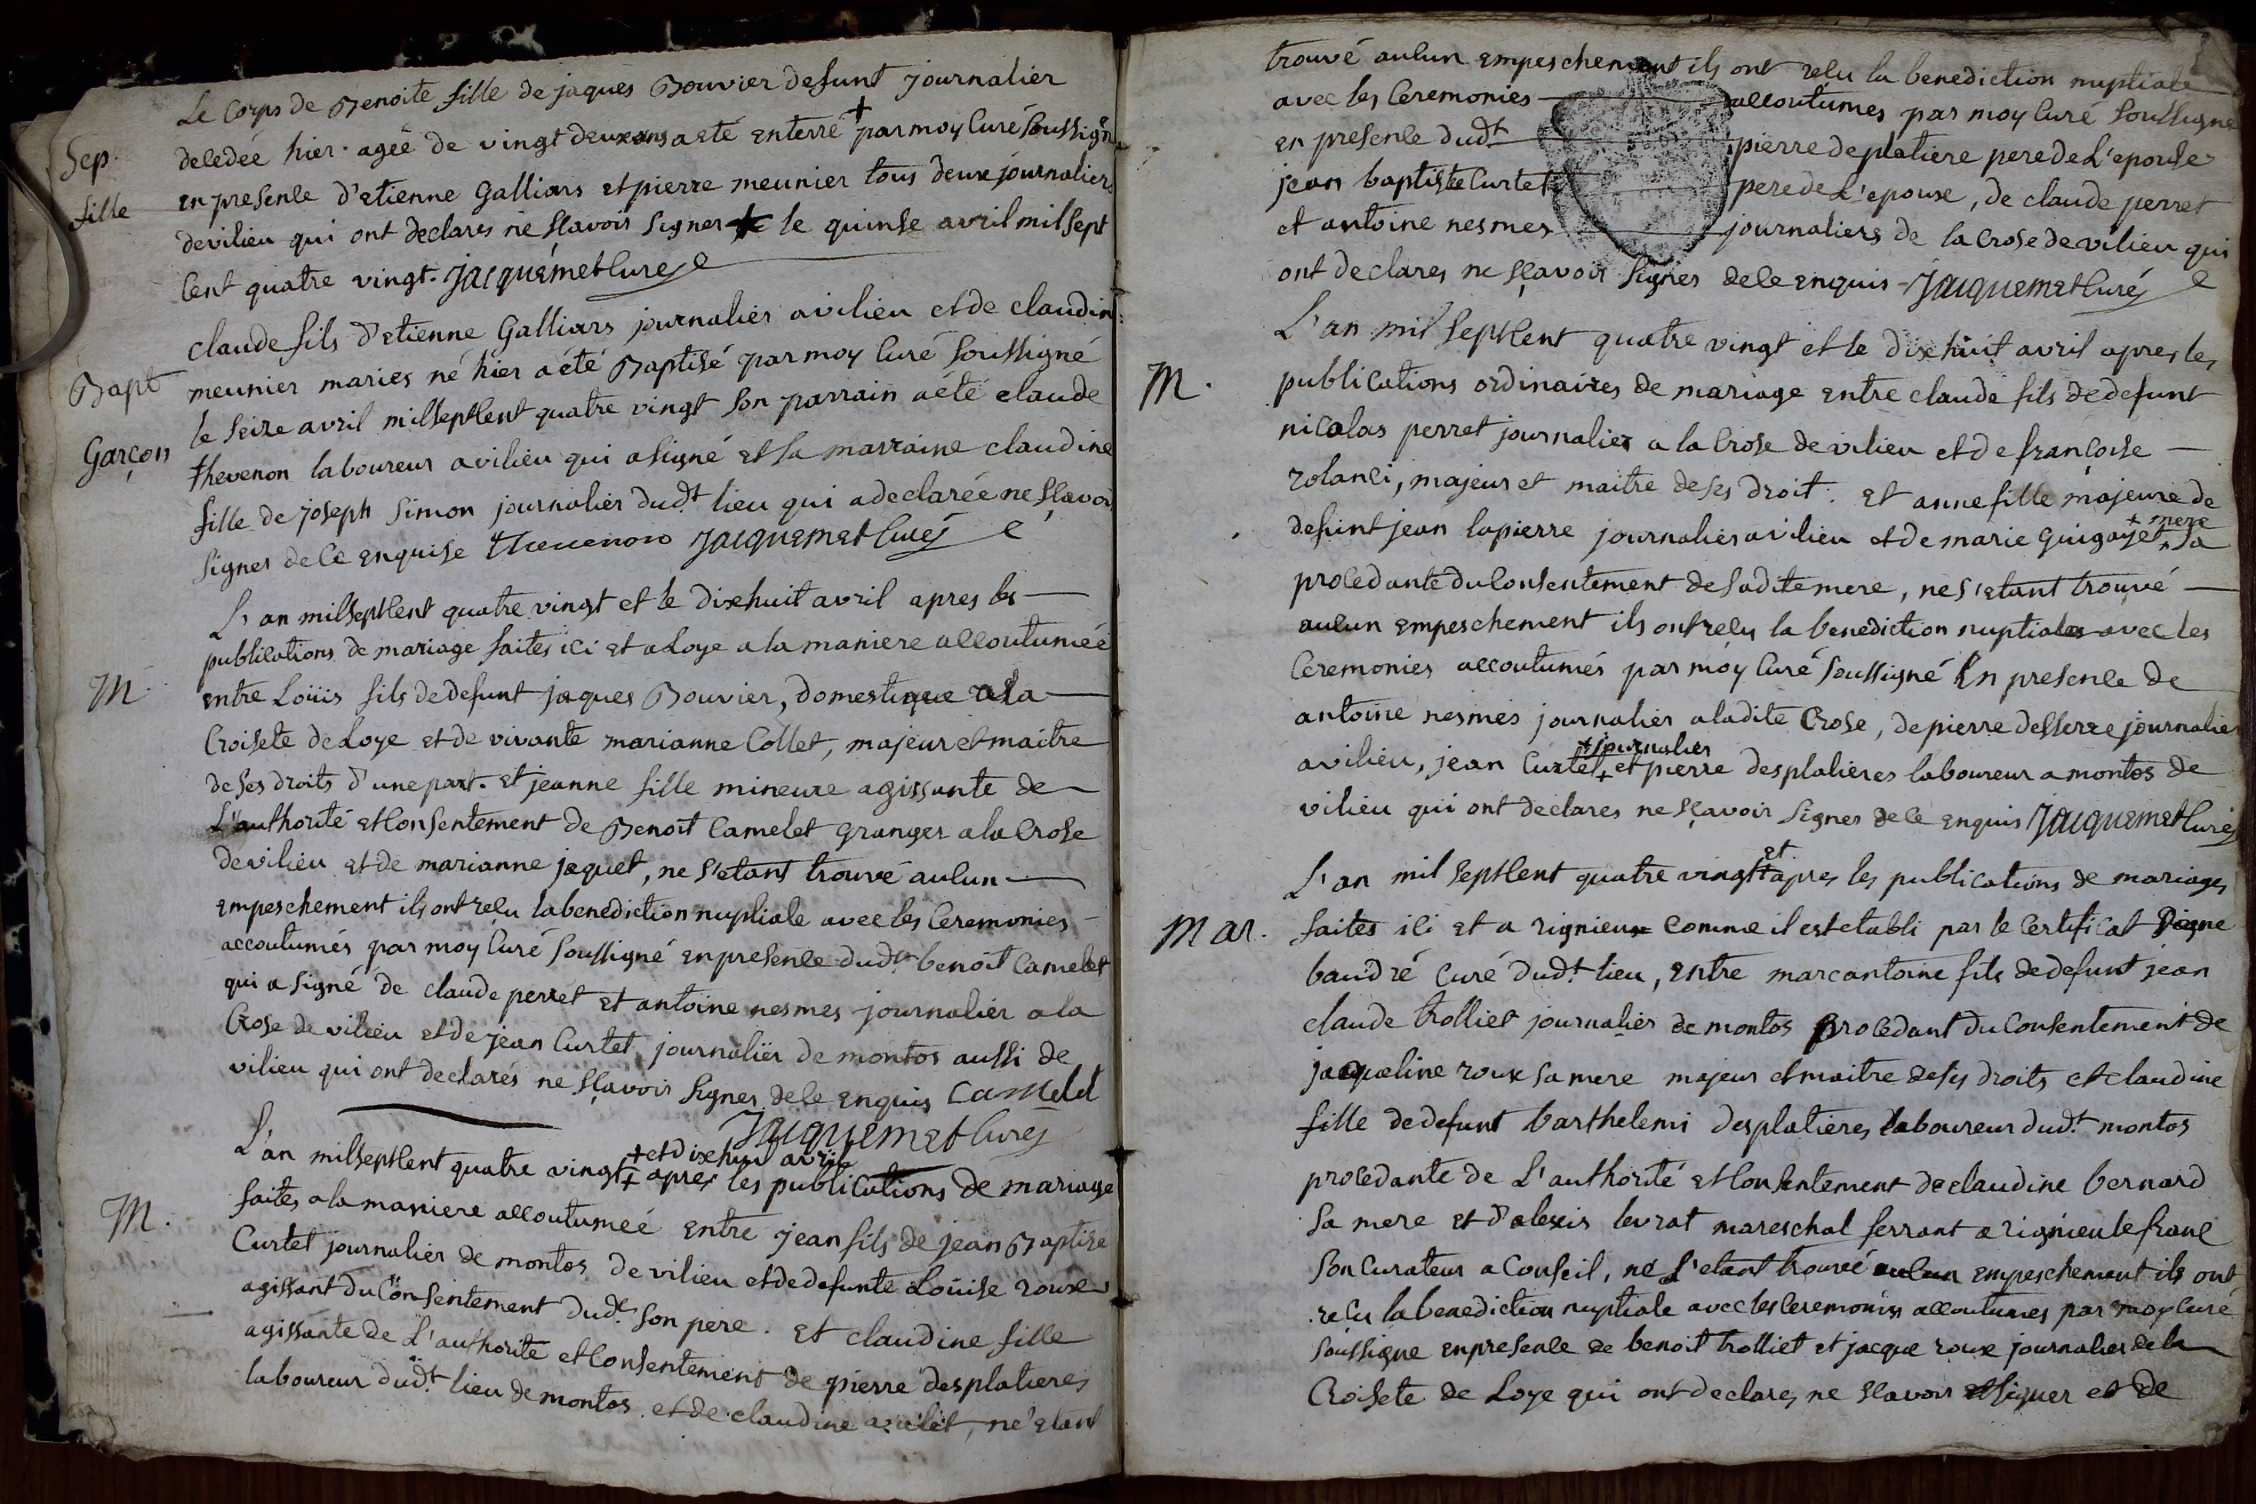 Le Corps de Benoite fille de jaques Bouvier defunt journalier
Sep.
fille
decedée hier. agée de vingt deux ans a eté enterré + par moy Curé Soussigné
en presence d'etienne Galliars et pierre meunier tous deux journaliers
de vilieu qui ont declares ne sçavoir signer le quinse avril mil sept
Cent quatre vingt. jacquemet Curé
Bapt
Garçon
claude fils d'etienne Galliars journalier a vilieu et de claudine
meunier maries né hier a été Baptisé par moy Curé Soussigné
le seize avril mil sept Cent quatre vingt son parrain a été claude
thevenon laboureur a vilieu qui a signé et sa marraine claudine
fille de joseph Simon journalier dud.t lieu qui a declarée ne sçavoir
signer de Ce enquise thevenon jacquemet Curé
M.
L'an mil sept Cent quatre vingt et le dix huit avril apres les
publications de mariage faites iCi et a Loye a la maniere accoutumée
entre Loüis fils de defunt jaques Bouvier, domestique a la
Croisete de Loye et de vivante marianne Collet, majeur et maitre
de ses droits d'une part. et jeanne fille mineure agissante de
L'authorité et Consentement de Benoit Camelet granger a la Crose
de vilieu et de marianne jaquet, ne s'etant trouvé auCun
empeschement ils ont reçu la benediction nuptiale avec les Ceremonies
accoutumés par moy Curé Soussigné en presence dud.t benoit Camelet
qui a signé de claude perret et antoine nesmes journalier a la
Crose de vilieu et de jean Curtet journalier de montos aussi de
vilieu qui ont declarés ne sçavoir signer de Ce enquis Camelet
jacquemet Curé
M.
L'an mil sept Cent quatre vingt + + et dix huit avril apres les publications de mariage
faites a la maniere accoutumeé entre jean fils de jean Baptiste
Curtet journalier de montos de vilieu et de defunte Loüise roux
agissant du Consentement dud.t son pere. et claudine fille
agissante de L'authorite et Consentement de pierre desplatieres
laboureur dud.t lieu de montos et de claudine , ne s'etant
trouvé auCun empeschement ils ont reçu la benediction nuptiale
avec les Ceremonies accoutumes par moy Curé Soussigné
en presence dud.t pierre de platiere pere de L'epouse
jean baptiste Curtet pere de L'epoux, de claude perret
et antoine nesmes journaliers de la Crose de vilieu qui
ont declares ne sçavoir signer de Ce enquis jacquemet Curé
M.
L'an mil sept Cent quatre vingt et le dix huit avril apres les
publications ordinaires de mariage entre claude fils de defunt
nicolas perret journalier a la Crose de vilieu et de françoise
rolanCi, majeur et maitre de ses droit. et anne fille majeure de
defunt jean lapierre journalier a vilieu et de marie guigoyet + + mere sa
procedante du Consentement de sadite mere, ne s'etant trouvé
auCun empeschement ils ont reçu la benediction nuptiales avec les
Ceremonies accoutumés par moy Curé Soussigné en presence de
antoine nesmes journalier a ladite Crose, de pierre desserre journalier
a vilieu, jean Curtet + + journalier et pierre desplatieres laboureur a montos de
vilieu qui ont declares ne sçavoir signer de Ce enquis jacquemet Curé
Mar.
L'an mil sept Cent quatre vingt et apres les publications de mariages
faites iCi et a rignieux comme il est etabli par le Certificat signe
baudré Curé dud.t lieu, entre marc antoine fils de defunt jean
claude trolliet journalier de montos procedant du Consentement de
jaqueline roux sa mere majeur et maitre de ses droits et claudine
fille de defunt barthelemi desplatieres laboureur dud.t montos
procedante de L'authorité et Consentement de claudine bernard
sa mere et d'alexis levrat mareschal ferrant a rignieu le franc
son Curateur a Conseil, ne s'etant trouvé auCun empeschement ils ont
reçu la benediction nuptiale avec les Ceremonies accoutumes par moy Curé
Soussigne en presence de benoit trolliet et jacque roux journalier de la
Croisete de Loye qui ont declares ne sçavoir signer et de